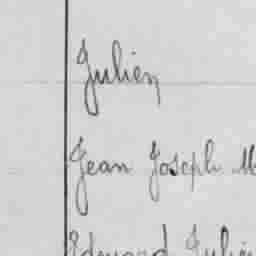 Julien
Jean Joseph M
Edouard Julien